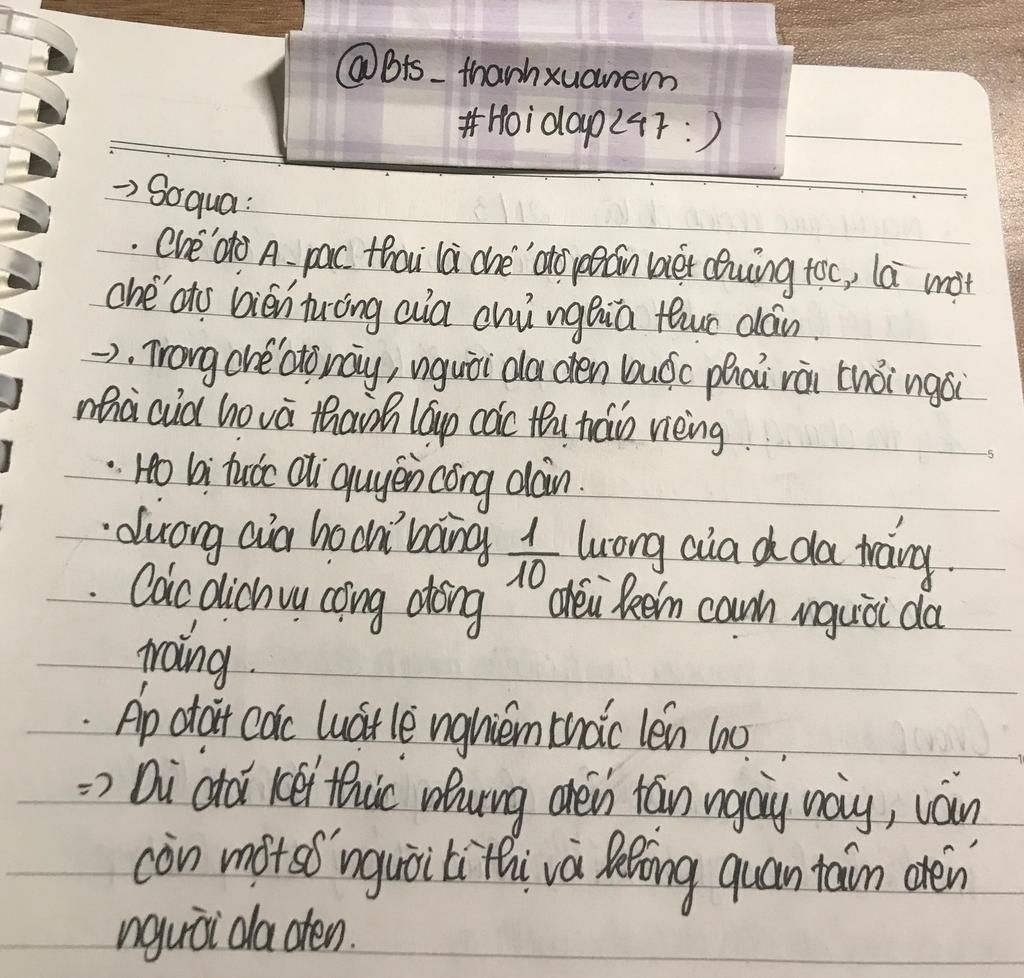 @Bts_thanhxuanem
#Hoidap247:)
→ Sơ qua:
. Chế độ A-pac thai là chế độ phân biệt chủng tộc, là một
chế độ biến tướng của chủ nghĩa thực dân.
→. Trong chế độ này, người da đen buộc phải rời khỏi ngôi
nhà của họ và thành lập các thị trấn riêng.
. Họ bị tước đi quyền công dân.
. Lương của họ chỉ bằng 1/10 lương của da trắng.
. Các dịch vụ cộng đồng đều kém cạnh người da
trắng.
. Áp đặt các luật lệ nghiêm khắc lên họ.
=> Dù đã kết thúc nhưng đến tân ngày này, vẫn
còn một số người kì thị và không quan tâm đến
người da đen.
5
10